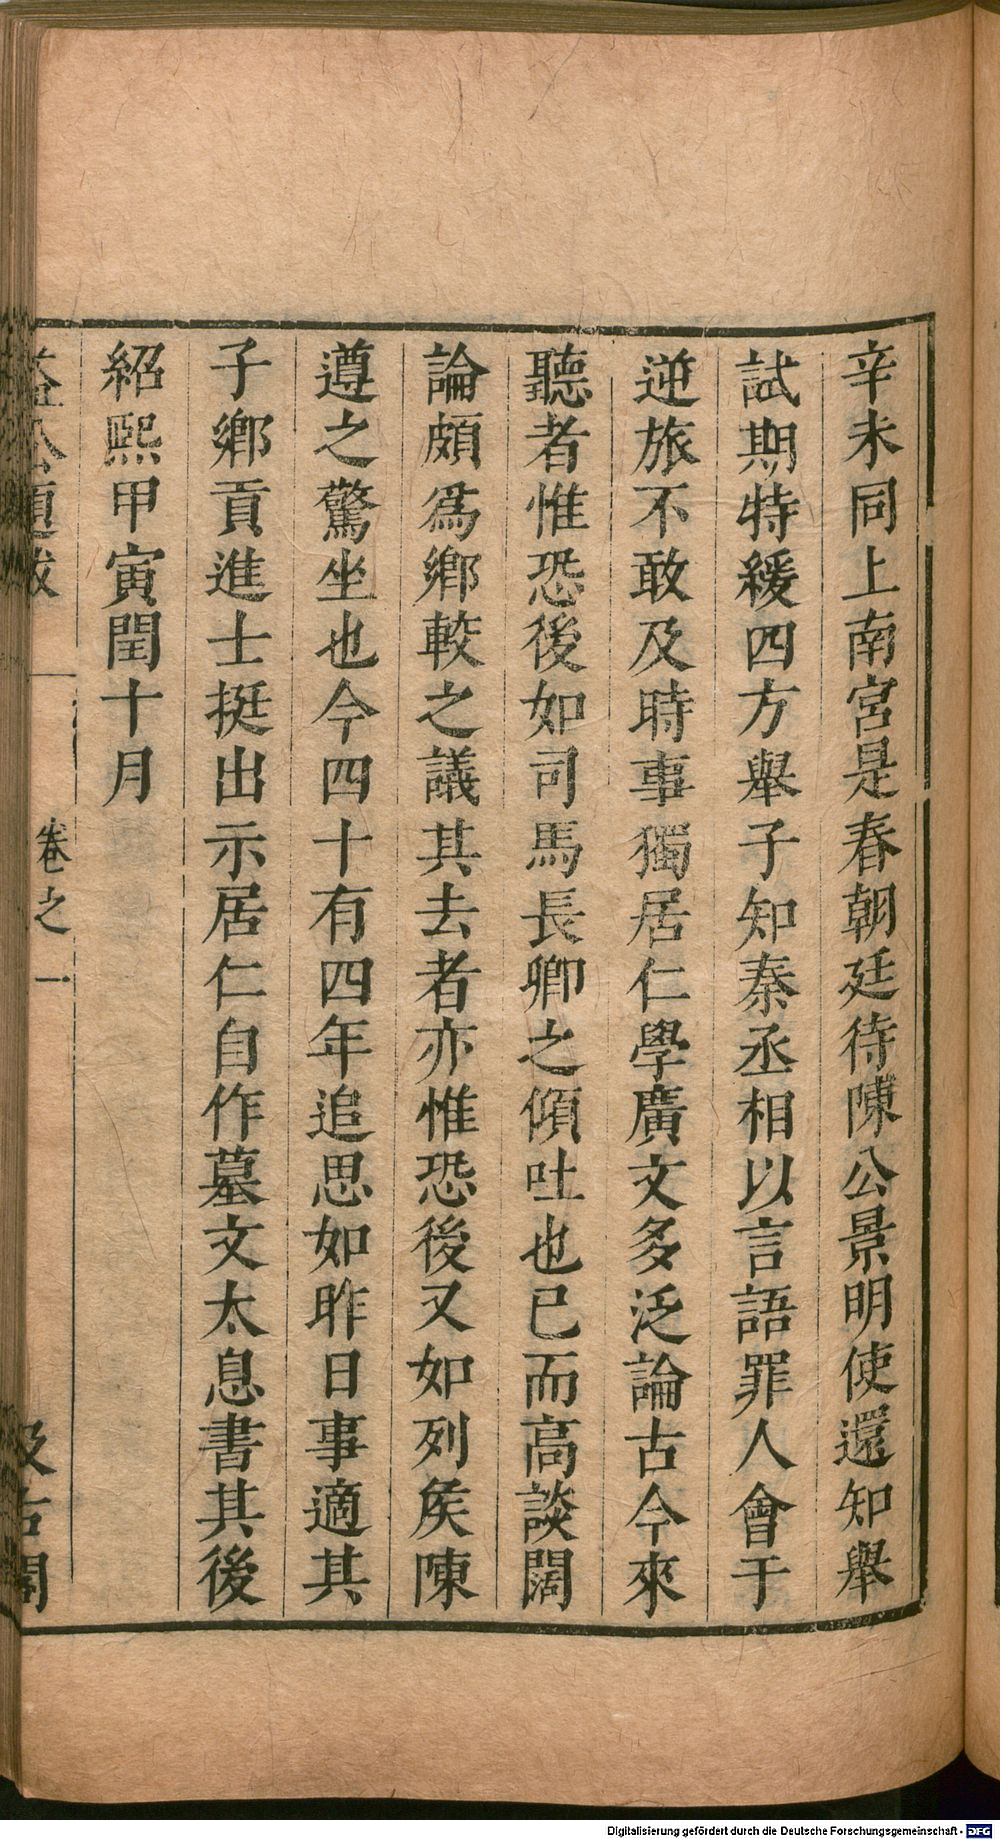 辛未同上南宮是春朝廷待陳公景明使還知舉
試期特緩四方舉子知秦丞相以言語罪人會于
逆旅不敢及時事獨居仁學廣文多泛論古今來
聽者惟恐後如司馬長卿之傾吐也已而高談闊
論頗爲鄉較之議其去者亦惟恐後又如列矦陳
遵之驚坐也今四十有四年追思如昨日事適其
子鄉貢進士挺出示居仁自作墓文太息書其後
紹熙甲寅閏十月
益公題跋 卷之一 汲古閣
Digitalisierung gefördert durch die Deutsche Forschungsgemeinschaft - DFG